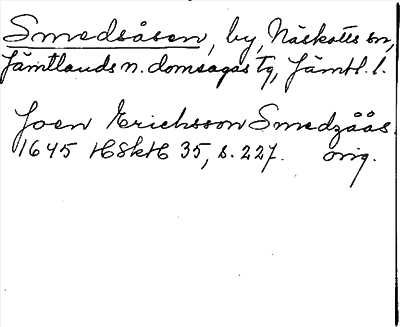 Smedsåsen, by, Näskotts sn,
Jämtlands n. domsagas tg, Jämtl. l.
Joen Ericksson Smedzåås.
1645 HSkH 35, s. 227. orig.